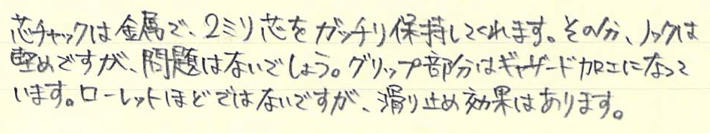 芯チャックは金属で、2ミリ芯をガッチリ保持してくれます。その分、ノックは
堅めですが、問題はないでしょう。グリップ部分はギャザード加工になって
います。ローレットほどではないですが、滑り止め効果はあります。